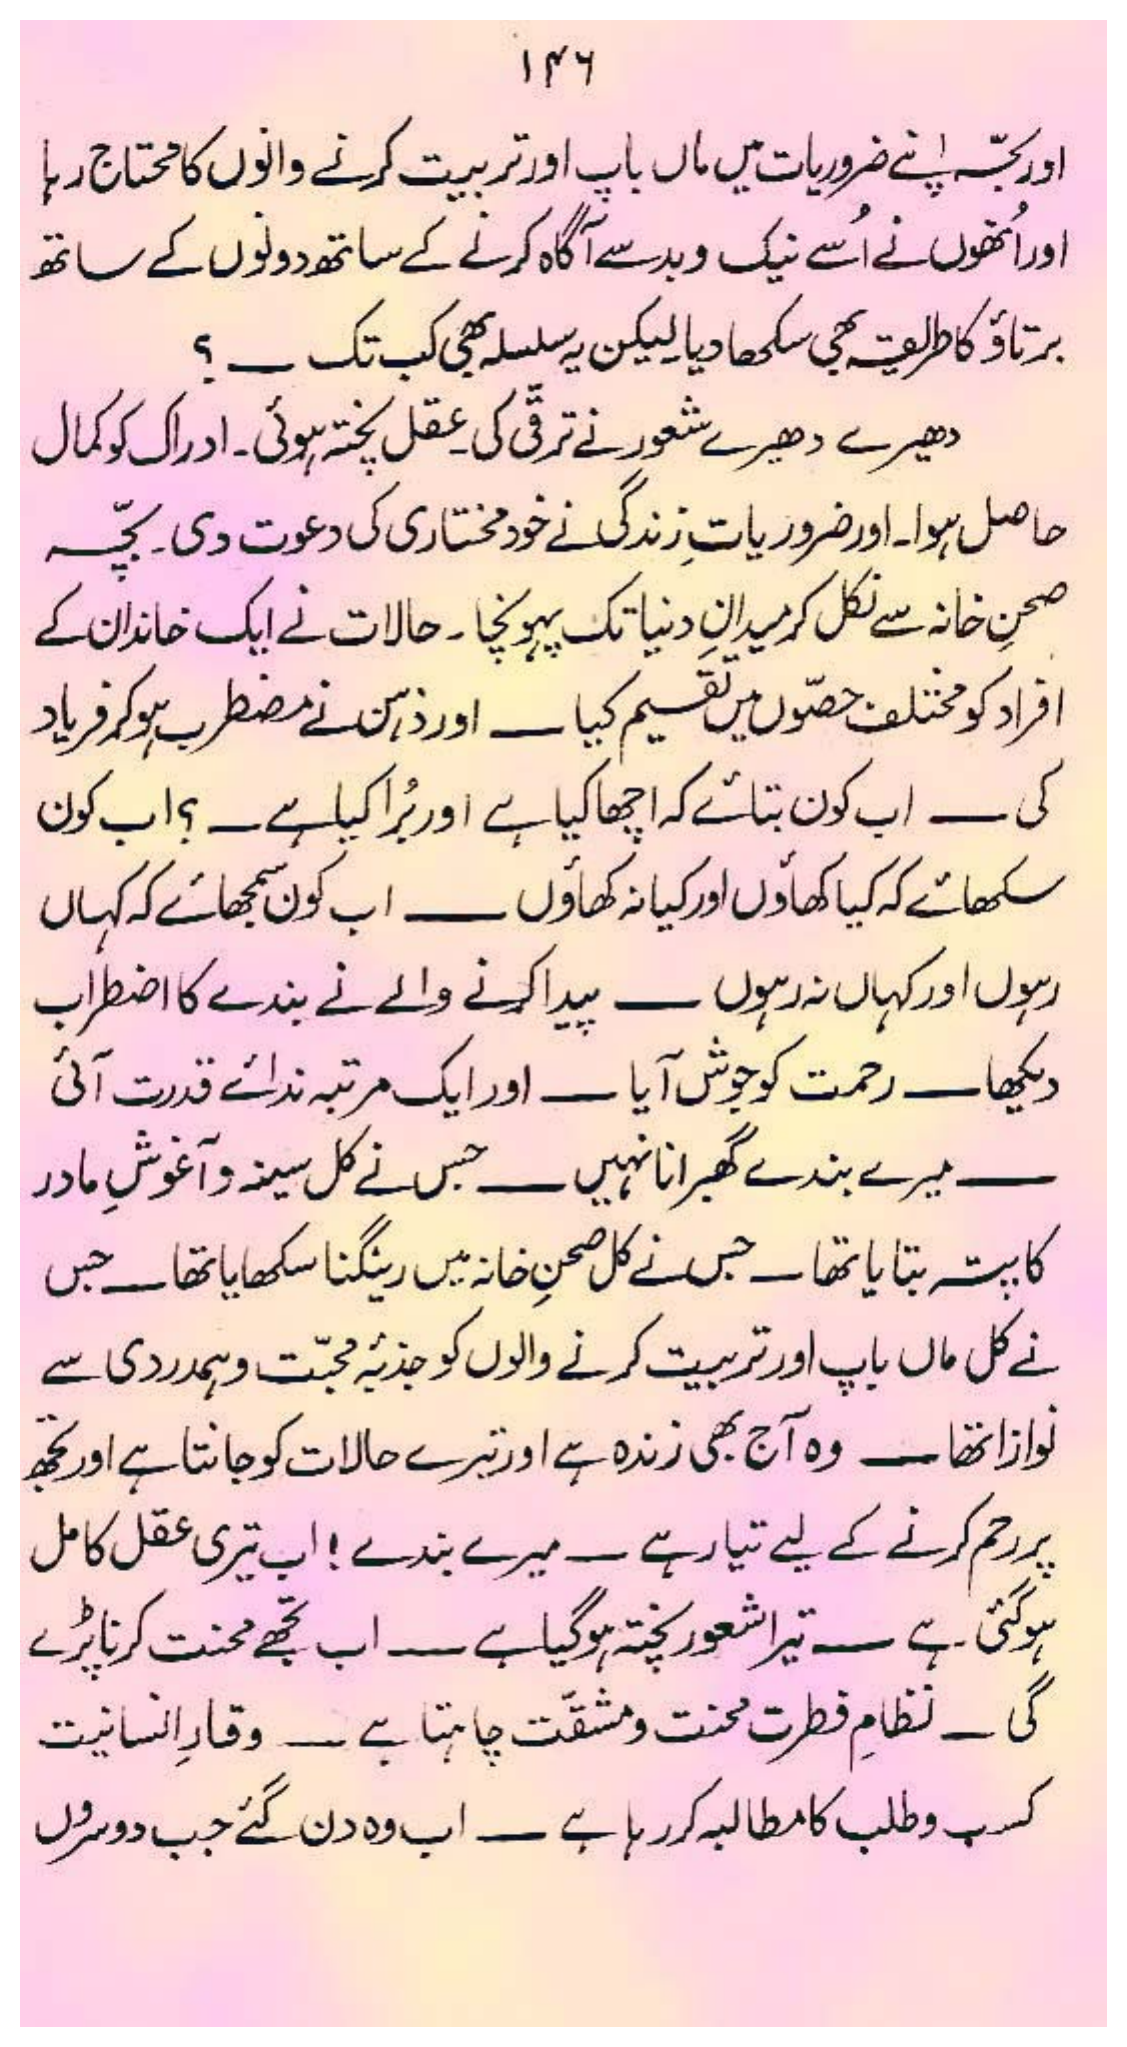 ۱۴۶
اور بچّہ اپنے ضروریات میں ماں باپ اور تربیت کرنے والوں کا محتاج رہا
اور اُنھوں نے اُسے نیک و بد سے آگاہ کرنے کے ساتھ دونوں کے ساتھ
برتاؤ کا طریقہ بھی سکھا دیا۔ لیکن یہ سلسلہ بھی کب تک ــــ ؟
دھیرے دھیرے شعور نے ترقّی کی۔ عقل پختہ ہوئی۔ ادراک کو کمال
حاصل ہوا۔ اور ضروریاتِ زندگی نے خود مختاری کی دعوت دی۔ بچّہ
صحنِ خانہ سے نکل کر میدانِ دنیا تک پہونچا۔ حالات نے ایک خاندان کے
افراد کو مختلف حصّوں میں تقسیم کیا ــــ اور ذہن نے مضطرب ہو کر فریاد
کی ــــ اب کون بتائے کہ اچھا کیا ہے اور بُرا کیا ہے ــــ ؟ اب کون
سکھائے کہ کیا کھاؤں اور کیا نہ کھاؤں ــــ اب کون سمجھائے کہ کہاں
رہوں اور کہاں نہ رہوں ــــ پیدا کرنے والے نے بندے کا اضطراب
دیکھا ــــ رحمت کو جوش آیا ــــ اور ایک مرتبہ ندائے قدرت آئی
ــــ میرے بندے گھبرانا نہیں ــــ جس نے کل سینہ و آغوشِ مادر
کا پتہ بتایا تھا ــــ جس نے کل صحنِ خانہ میں رینگنا سکھایا تھا ــــ جس
نے کل ماں باپ اور تربیت کرنے والوں کو جذبۂ محبّت و ہمدردی سے
نوازا تھا ــــ وہ آج بھی زندہ ہے اور تیرے حالات کو جانتا ہے اور تجھ
پر رحم کرنے کے لیے تیار ہے ــــ میرے بندے ! اب تیری عقل کامل
ہو گئی۔ ہے ــــ تیرا شعور پختہ ہو گیا ہے ــــ اب تجھے محنت کرنا پڑے
گی ــــ نظامِ فطرت محنت و مشقّت چاہتا ہے ــــ وقارِ انسانیت
کسب و طلب کا مطالبہ کر رہا ہے ــــ اب وہ دن گئے جب دوسروں